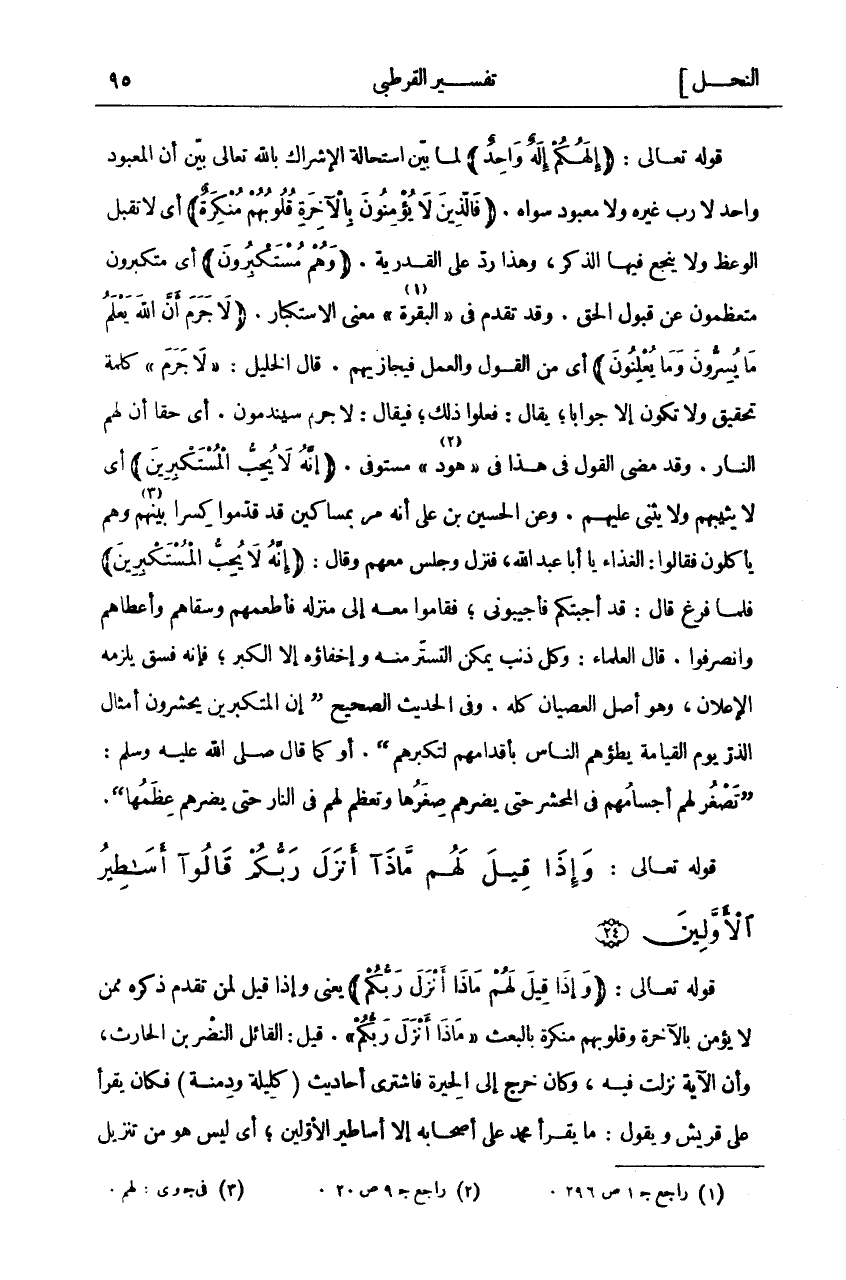 النحــل] تفســير القرطبى ٩٥
قوله تعـالى : ﴿إِلَهُكُمْ إِلَهٌ وَاحِدٌ﴾ لما بيّن استحالة الإشراك بالله تعالى بيّن أن المعبود
واحد لا رب غيره ولا معبود سواه . ﴿فَالَّذِينَ لَا يُؤْمِنُونَ بِالْآخِرَةِ قُلُوبُهُمْ مُنْكِرَةٌ﴾ أى لا تقبل
الوعظ ولا ينجع فيهـا الذكر ، وهذا ردّ على القـدرية . ﴿وَهُمْ مُسْتَكْبِرُونَ﴾ أى متكبرون
متعظمون عن قبول الحق . وقد تقدم فى « البقرة (١) » معنى الاستكبار . ﴿لَا جَرَمَ أَنَّ اللهَ يَعْلَمُ
مَا يُسِرُّونَ وَمَا يُعْلِنُونَ﴾ أى من القـول والعمل فيجازيهم . قال الخليل : « لَا جَرَمَ » كلمة
تحقيق ولا تكون إلا جوابا؛ يقال : فعلوا ذلك؛ فيقال : لا جرم سيندمون . أى حقا أن لهم
النـار . وقد مضى القول فى هـذا فى « هود (٢) » مستوفى . ﴿إِنَّهُ لَا يُحِبُّ الْمُسْتَكْبِرِينَ﴾ أى
لا يثيبهم ولا يثنى عليهـم . وعن الحسين بن على أنه مر بمساكين قد قدّموا كِسرا بينهم (٣) وهم
يأكلون فقالوا : الغذاء يا أبا عبد الله، فنزل وجلس معهم وقال : ﴿إِنَّهُ لَا يُحِبُّ الْمُسْتَكْبِرِينَ﴾
فلمـا فرغ قال : قد أجبتكم فأجيبونى ؛ فقاموا معـه إلى منزله فأطعمهم وسقاهم وأعطاهم
وانصرفوا . قال العلماء : وكل ذنب يمكن التستّر منـه وإخفاؤه إلا الكبر ؛ فإنه فسق يلزمه
الإعلان ، وهو أصل العصيان كله . وفى الحديث الصحيح ” إن المتكبرين يحشرون أمثال
الذرّ يوم القيامة يطؤهم النـاس بأقدامهم لتكبرهم “ . أو كما قال صـلى الله عليـه وسلم :
” تَصْغُر لهم أجسامُهم فى المحشر حتى يضرهم صِغَرُها وتعظم لهم فى النار حتى يضرهم عِظَمُها “.
قوله تعـالى : وَإِذَا قِيلَ لَهُم مَّاذَآ أَنزَلَ رَبُّكُمْ قَالُوٓا أَسَـٰطِيرُ
ٱلْأَوَّلِينَ ﴿٢٤﴾
قوله تعـالى : ﴿وَإِذَا قِيلَ لَهُمْ مَاذَا أَنْزَلَ رَبُّكُمْ﴾ يعنى وإذا قيل لمن تقدم ذكره ممن
لا يؤمن بالآخرة وقلوبهم منكرة بالبعث « مَاذَا أَنْزَلَ رَبُّكُمْ» . قيل : القائل النضْر بن الحارث،
وأن الآية نزلت فيـه ، وكان خرج إلى الحِيرة فاشترى أحاديث ( كَليلة ودِمنـة ) فكان يقرأ
على قريش ويقول : ما يقـرأ محمد على أصحـابه إلا أساطير الأوّلين ؛ أى ليس هو من تنزيل
(١) راجع جـ ١ ص ٢٩٦ . (٢) راجع جـ ٩ ص ٢٠ . (٣) فى جـ وى : لهم .